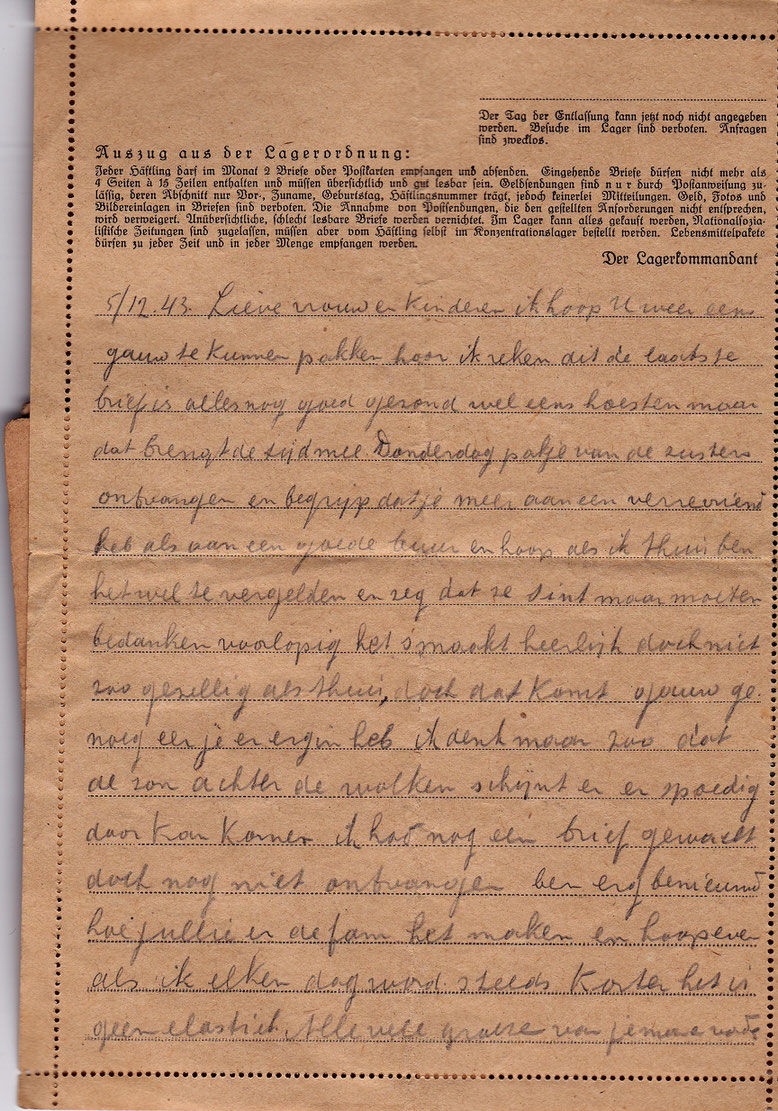 Der Tag der Entlassung kann jetzt noch nicht angegeben
werden. Besuche im Lager sind verboten. Anfragen
sind zwecklos.
Auszug aus der Lagerordnung:
Jeder Häftling darf im Monat 2 Briefe oder Postkarten empfangen und absenden. Eingehende Briefe dürfen nicht mehr als
4 Seiten à 15 Zeilen enthalten und müssen übersichtlich und gut lesbar sein. Geldsendungen sind nur durch Postanweisung zu-
lässig, deren Abschnitt nur Vor-, Zuname, Geburtstag, Häftlingsnummer trägt, jedoch keinerlei Mitteilungen. Geld, Fotos und
Bildereinlagen in Briefen sind verboten. Die Annahme von Postsendungen, die den gestellten Anforderungen nicht entsprechen,
wird verweigert. Unübersichtliche, schlecht lesbare Briefe werden vernichtet. Im Lager kann alles gekauft werden, Nationalsozia-
listische Zeitungen sind zugelassen, müssen aber vom Häftling selbst im Konzentrationslager bestellt werden. Lebensmittelpakete
dürfen zu jeder Zeit und in jeder Menge empfangen werden.
Der Lagerkommandant
5/12.43. Lieve vrouw en Kinderen ik hoop U weer eens
gauw te kunnen pakken hoor ik reken dit de laatste
brief is alles nog goed gezond wel eens hoesten maar
dat brengt de tijd mee Donderdag pakje van de zusters
ontvangen en begrijp dat je meer aan een verre vriend
heb als aan een goede buur en hoop als ik thuis ben
het wel te vergelden en zeg dat ze Sint maar moeten
bedanken voorlopig het smaakt heerlijk doch niet
zoo gezellig als thuis, doch dat komt gauw ge-
noeg eer je er erg in heb ik denk maar zoo dat
de zon achter de wolken schijnt en er spoedig
door kan komen ik had nog een brief gewacht
doch nog niet ontvangen ben erg benieuwd
hoe jullie en de fam het maken en hoop even
als ik elken dag word steeds korter het is
geen elastiek. Alle vele groeten van je